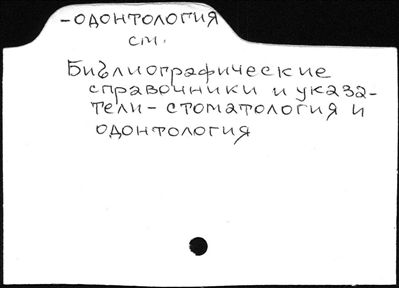 -ОДОНТОЛОГИЯ
см.
Библиографические
справочники и указа-
тели - стоматология и
одонтология